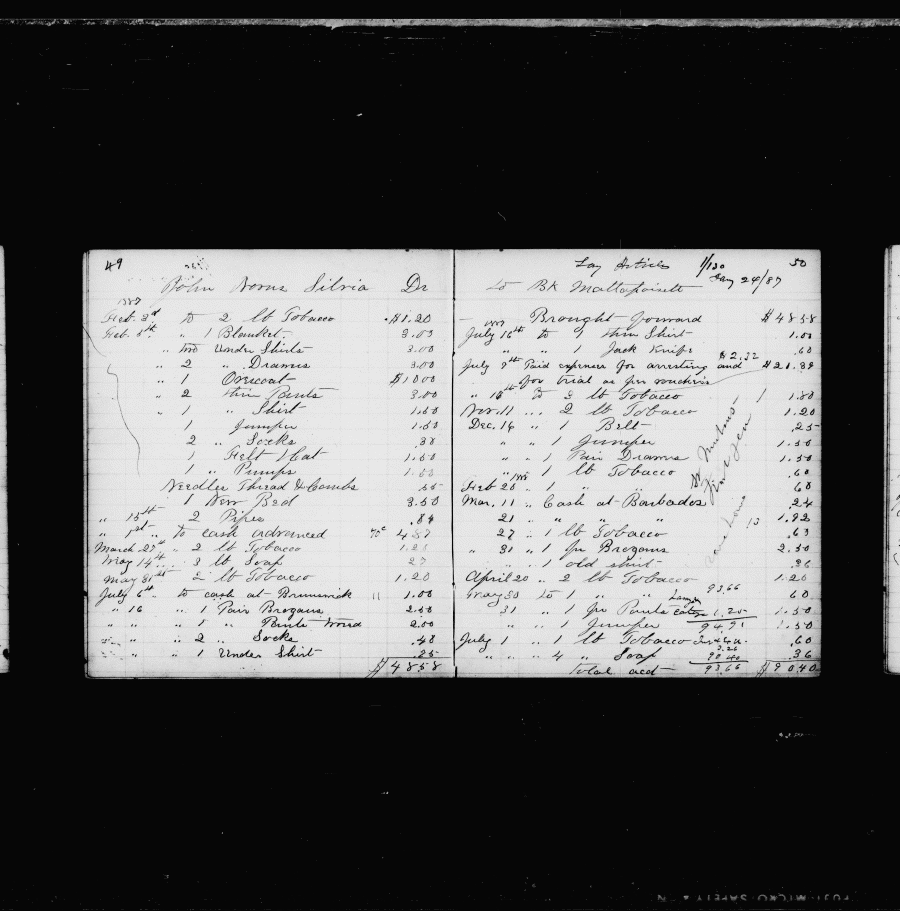 49
John Silvia Dr
1887
Feb. 3d to 2 lb Tobacco $1.20
Feb. 5th " 1 Blanket 3.03
" two Under Shirts 3.00
" 2 " Drawers 3.00
" 1 Overcoat $10 00
" 2 thin Pants 3.00
" 1 " Shirt 1.50
1 Jumper 1.50
2 " Socks
1 Felt Hat 1.50
1 " Pumps
Needles Thread & Combs
1 New Bed 3.50
" 15th 2 Pipes
" 1st " to cash advanced 4.87
March 2 lb Tobacco
May 14th 3 lb Soap 27
May 31st 2 lb Tobacco 1.20
July 6th to cash at Brunswick 11 1.00
" 16 " 1 Pair Brogans 2.50
" " " 1 " Pants 2.00
" " 2 " Socks .48
" " 1 Under Shirt .25
$48.58
50
Lay Articles 1/130
Bk Mattapoisett Jany 24/87
Brought Forward $48.58
1887
July 16th to 1 thin Shirt 1.00
" " 1 Jack Knife .60
$2.32
July 9th Paid expenses for arresting and $21.89
for trial as per vouchers
" 16th to 3 lb Tobacco 1.80
Nov. 11 .. 2 lb Tobacco 1.20
Dec. 14 " 1 Belt .25
" " 1 Jumper 1.50
" " 1 Pair Drawers 1.50
" " 1 lb Tobacco .60
Feb 20 " 1 " " 60
Mar. 11 " Cash at Barbados .24
21 " " " " 13 1.92
27 " 1 lb Tobacco .63
" 31 " 1 pr Brogans 2.50
" 1 old shirt .36
April 20 " 2 lb Tobacco 1.20
93.66
May 30 to 1 " " 60
31 " 1 pr Pants 1.25 1.50
94.91
" 1 Jumper 1.50
July 1 " 1 lb Tobacco .60
3.26
" " " 4 " Soap 90.40 .36
Total acct 93.66 $90.40